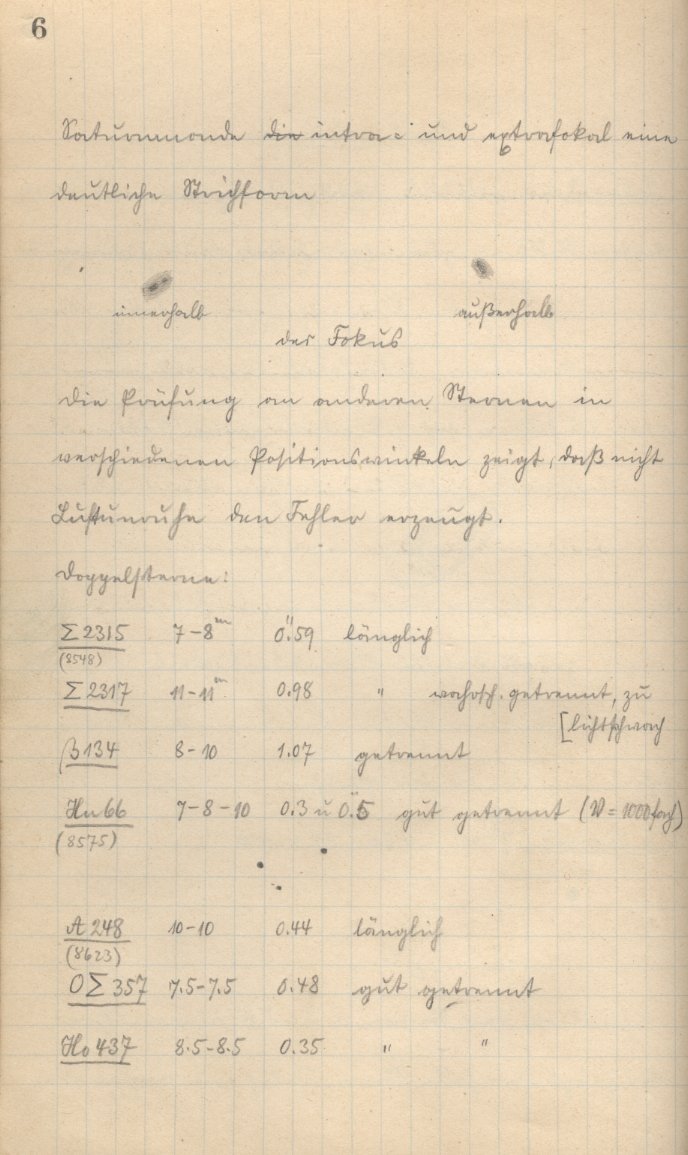 6
Saturnmonde die intra- und extrafokal eine
deutliche Strichform
innerhalb außerhalb
des Fokus
Die Prüfung an anderen Sternen in
verschiedenen Positionswinkeln zeigt, daß nicht
Luftunruhe den Fehler erzeugt.
Doppelsterne:
Σ 2315 7-8ᵐ 0".59 länglich
(8548)
Σ 2317 11-11ᵐ 0.98 " wahrsch. getrennt, zu
[lichtschwach
β 134 8-10 1.07 getrennt
Hu 66 7-8-10 0.3 u 0".5 gut getrennt (V = 1000fach)
(8575)
A 248 10-10 0.44 länglich
(8623)
OΣ 357 7.5-7.5 0.48 gut getrennt
Ho 437 8.5-8.5 0.35 " "